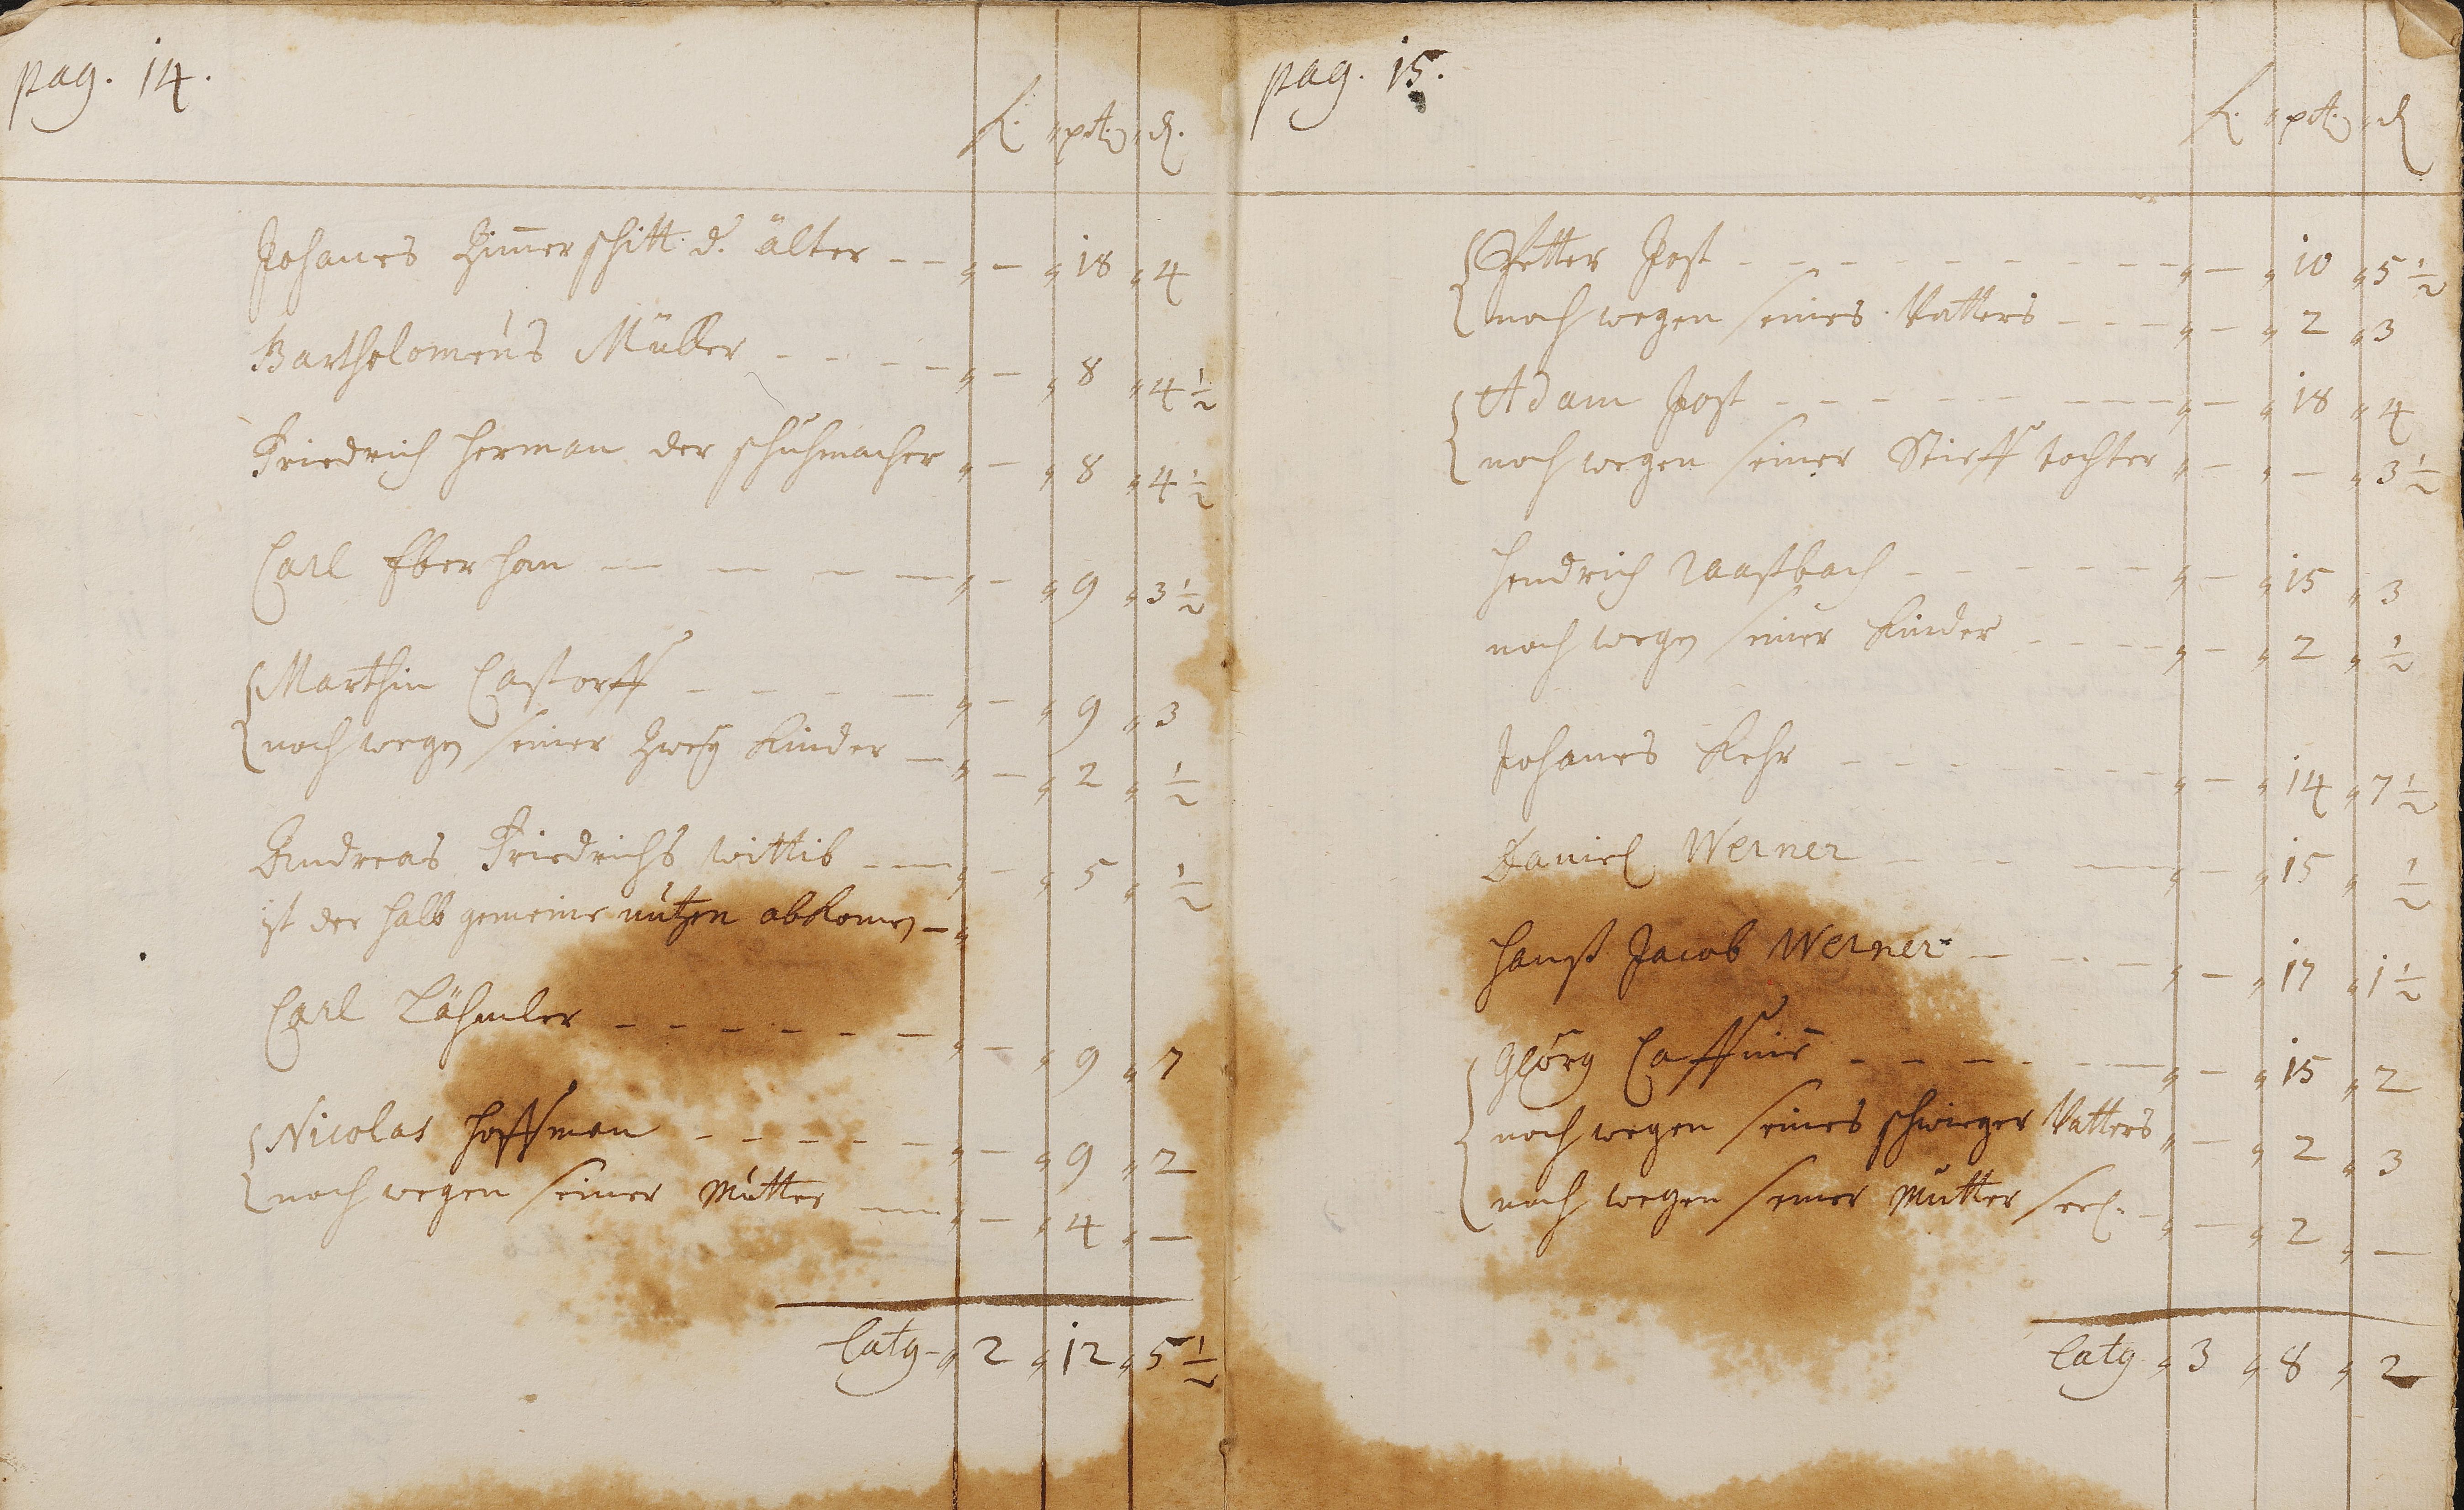 pag. 14.
fl. pct. d.
Johanes Zimerschitt d. älter — 18 4
Bartholomeus Müller — 8 4½
Friedrich Herman der schuhmacher — 8 4½
Carl Eberhan — 9 3½
Marthin Castorff — 9 3
noch wegen seiner Zwey Kinder — 2 ½
Andreas Friedrichs wittib — 5 ½
ist der halb gemeine nutzen abkomen —
Carl Lähmler — 9 7
Nicolas Hoffman — 9 2
noch wegen seiner Mutter — 4 —
Latg. 2 12 5½
pag. 15.
fl. pct. d
Petter Jost — 10 5½
noch wegen seines Vatters — 2 3
Adam Jost — 18 4
noch wegen seiner Stieff tochter — — 3½
Hendrich Raaßbach — 15 3
noch wegen seiner Kinder — 2 ½
Johanes Kehr — 14 7½
Daniel Werner — 15 ½
Hanß Jacob Werner — 17 1½
Geörg — 15 2
noch wegen seines schwieger Vatters — 2 3
noch wegen seiner Mutter seel. — 2 —
Latg 3 8 2